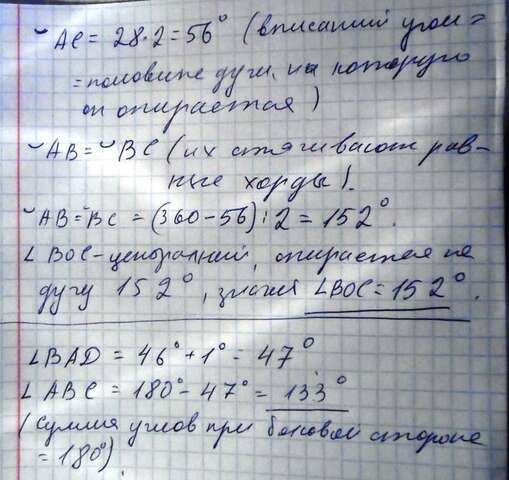 ◡AC = 28·2 = 56° (вписаний угол =
= половине дуги, на которую
он опирается)
◡AB = ◡BC (их стягивают рав-
ные хорды).
◡AB = BC = (360-56):2 = 152°.
∠BOC - центральный, опирается на
дугу 152°, значит ∠BOC = 152°.
∠BAD = 46° + 1° = 47°
∠ABC = 180° - 47° = 133°
(сумма углов при боковой стороне
= 180°).